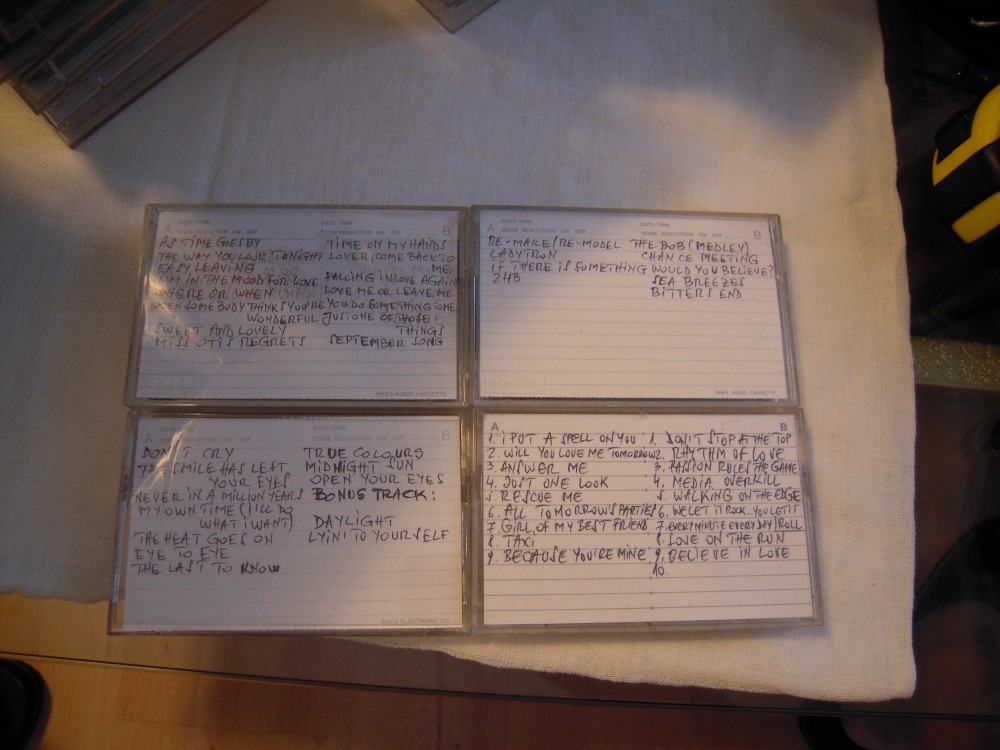 A DATE/TIME DATE/TIME B
NOISE REDUCTION ON OFF NOISE REDUCTION ON OFF
AS TIME GOES BY
THE WAY YOU LOOK TONIGHT
EASY LEAVING
I'M IN THE MOOD FOR LOVE
WHERE OR WHEN
WHEN SOMEBODY THINKS YOU'RE
WONDERFUL
SWEET AND LOVELY
MISS OTIS REGRETS
TIME ON MY HANDS
LOVER, COME BACK TO
ME
FALLING IN LOVE AGAIN
LOVE ME OR LEAVE ME
YOU DO SOMETHING TO ME
JUST ONE OF THOSE
THINGS
SEPTEMBER SONG
RAKS AUDIO CASSETTE
A DATE/TIME DATE/TIME B
NOISE REDUCTION ON OFF NOISE REDUCTION ON OFF
RE-MAKE/RE-MODEL
LADYTRON
IF THERE IS SOMETHING
2HB
THE BOB (MEDLEY)
CHANCE MEETING
WOULD YOU BELIEVE?
SEA BREEZES
BITTERS END
RAKS AUDIO CASSETTE
A DATE/TIME DATE/TIME B
NOISE REDUCTION ON OFF NOISE REDUCTION ON OFF
DON'T CRY
THE SMILE HAS LEFT
YOUR EYES
NEVER IN A MILLION YEARS
MY OWN TIME (I'LL DO
WHAT I WANT)
THE HEAT GOES ON
EYE TO EYE
THE LAST TO KNOW
TRUE COLOURS
MIDNIGHT SUN
OPEN YOUR EYES
BONUS TRACK:
DAYLIGHT
LYIN' TO YOURSELF
RAKS ELECTRONIC CO.
A B
1. I PUT A SPELL ON YOU
2. WILL YOU LOVE ME TOMORROW
3. ANSWER ME
4. JUST ONE LOOK
5. RESCUE ME
6. ALL TOMORROWS PARTIES
7. GIRL OF MY BEST FRIEND
8. TAXI
9. BECAUSE YOU'RE MINE
1. DON'T STOP AT THE TOP
2. RHYTHM OF LOVE
3. PASSION RULES THE GAME
4. MEDIA OVERKILL
5. WALKING ON THE EDGE
6. WE LET IT ROCK..YOU LET IT
7. EVERY MINUTE EVERY DAY/ROLL
8. LOVE ON THE RUN
9. BELIEVE IN LOVE
10.